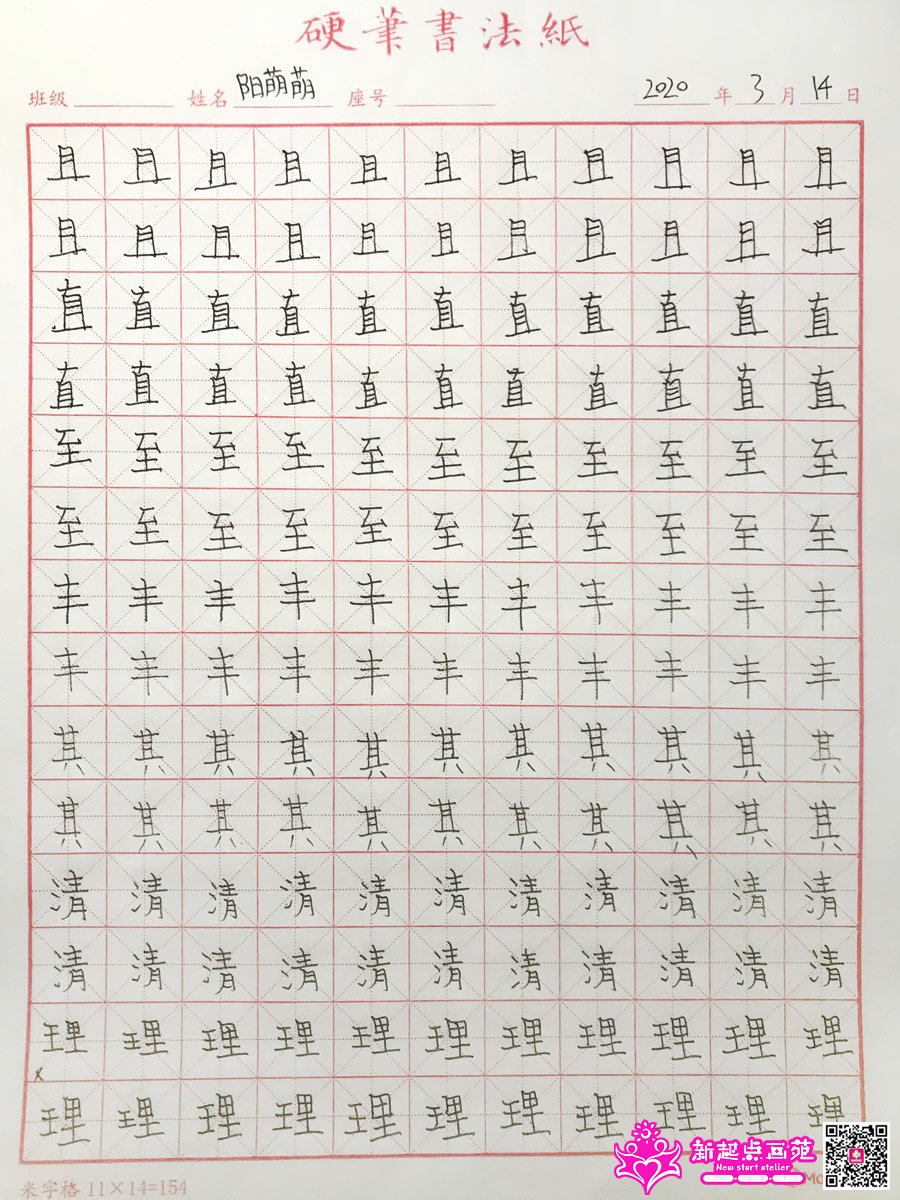 硬筆書法紙
班级 姓名 阳萌萌 座号 2020 年 3 月 14 日
且 且 且 且 且 且 且 且 且 且 且
且 且 且 且 且 且 且 且 且 且 且
直 直 直 直 直 直 直 直 直 直 直
直 直 直 直 直 直 直 直 直 直 直
至 至 至 至 至 至 至 至 至 至 至
至 至 至 至 至 至 至 至 至 至 至
丰 丰 丰 丰 丰 丰 丰 丰 丰 丰 丰
丰 丰 丰 丰 丰 丰 丰 丰 丰 丰 丰
其 其 其 其 其 其 其 其 其 其 其
其 其 其 其 其 其 其 其 其 其 其
清 清 清 清 清 清 清 清 清 清 清
清 清 清 清 清 清 清 清 清 清 清
理 理 理 理 理 理 理 理 理 理 理
x
理 理 理 理 理 理 理 理 理 理 理
米字格 11×14=154
新起点画苑
New start atelier